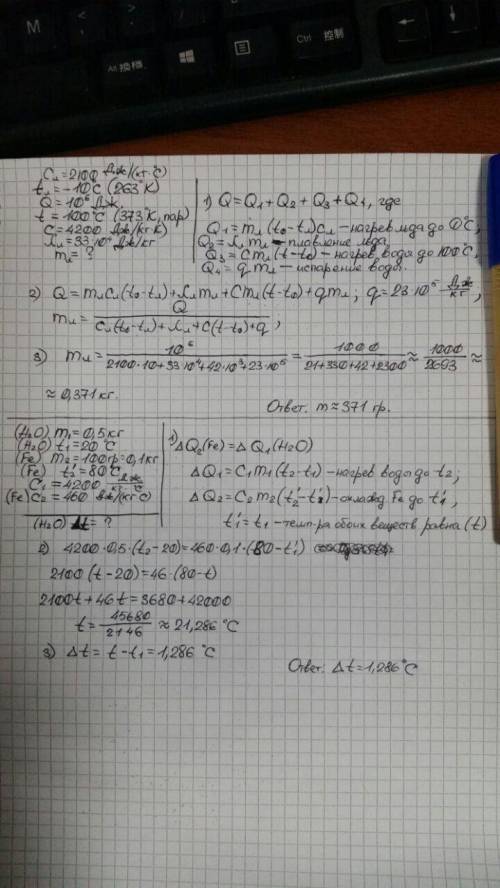 M
<
>
?
Alt 换档
Ctrl 控制
←
→
Cл=2100 Дж/(кг·°C)
tл=-10°C (263°K)
Q=10⁶ Дж,
t=100°C (373°K, пар)
C=4200 Дж/(кг·K)
λл=33·10⁴ Дж/кг
mл=?
1) Q=Q₁+Q₂+Q₃+Q₄, где
Q₁=mл(t₀-tл)cл-нагрев льда до 0°C,
Q₂=λл mл-плавление льда,
Q₃=Cmл(t-t₀)-нагрев воды до 100°C,
Q₄=q mл-испарение воды.
2) Q=mлCл(t₀-tл)+λлmл+Cmл(t-t₀)+qmл; q=23·10⁵ Дж/кг,
mл=Q/(Cл(t₀-tл)+λл+C(t-t₀)+q),
3) mл=10⁶/(2100·10+33·10⁴+42·10³+23·10⁵)=1000/(21+330+42+2300)≈1000/2693≈
≈0,371 кг.
Ответ. m≈371 гр.
(H₂O) m₁=0,5кг
(H₂O) t₁=20°C
(Fe) m₂=100гр=0,1кг
(Fe) t₂'=80°C
C₁=4200 Дж/кг·°C
(Fe) C₂=460 Дж/(кг·C)
(H₂O) Δt=?
1) ΔQ₂(Fe)=ΔQ₁(H₂O)
ΔQ₁=C₁m₁(t₂-t₁)-нагрев воды до t₂;
ΔQ₂=C₂m₂(t₂'-t₁')-охлажд Fe до t₁',
t₁'=t₁-темп-ра обоих веществ равна (t)
2) 4200·0,5·(t₂-20)=460·0,1·(80-t₁')
2100(t-20)=46·(80-t)
2100t+46t=3680+42000
t=45680/2146≈21,286°C
3) Δt=t-t₁=1,286°C
Ответ. Δt=1,286°C